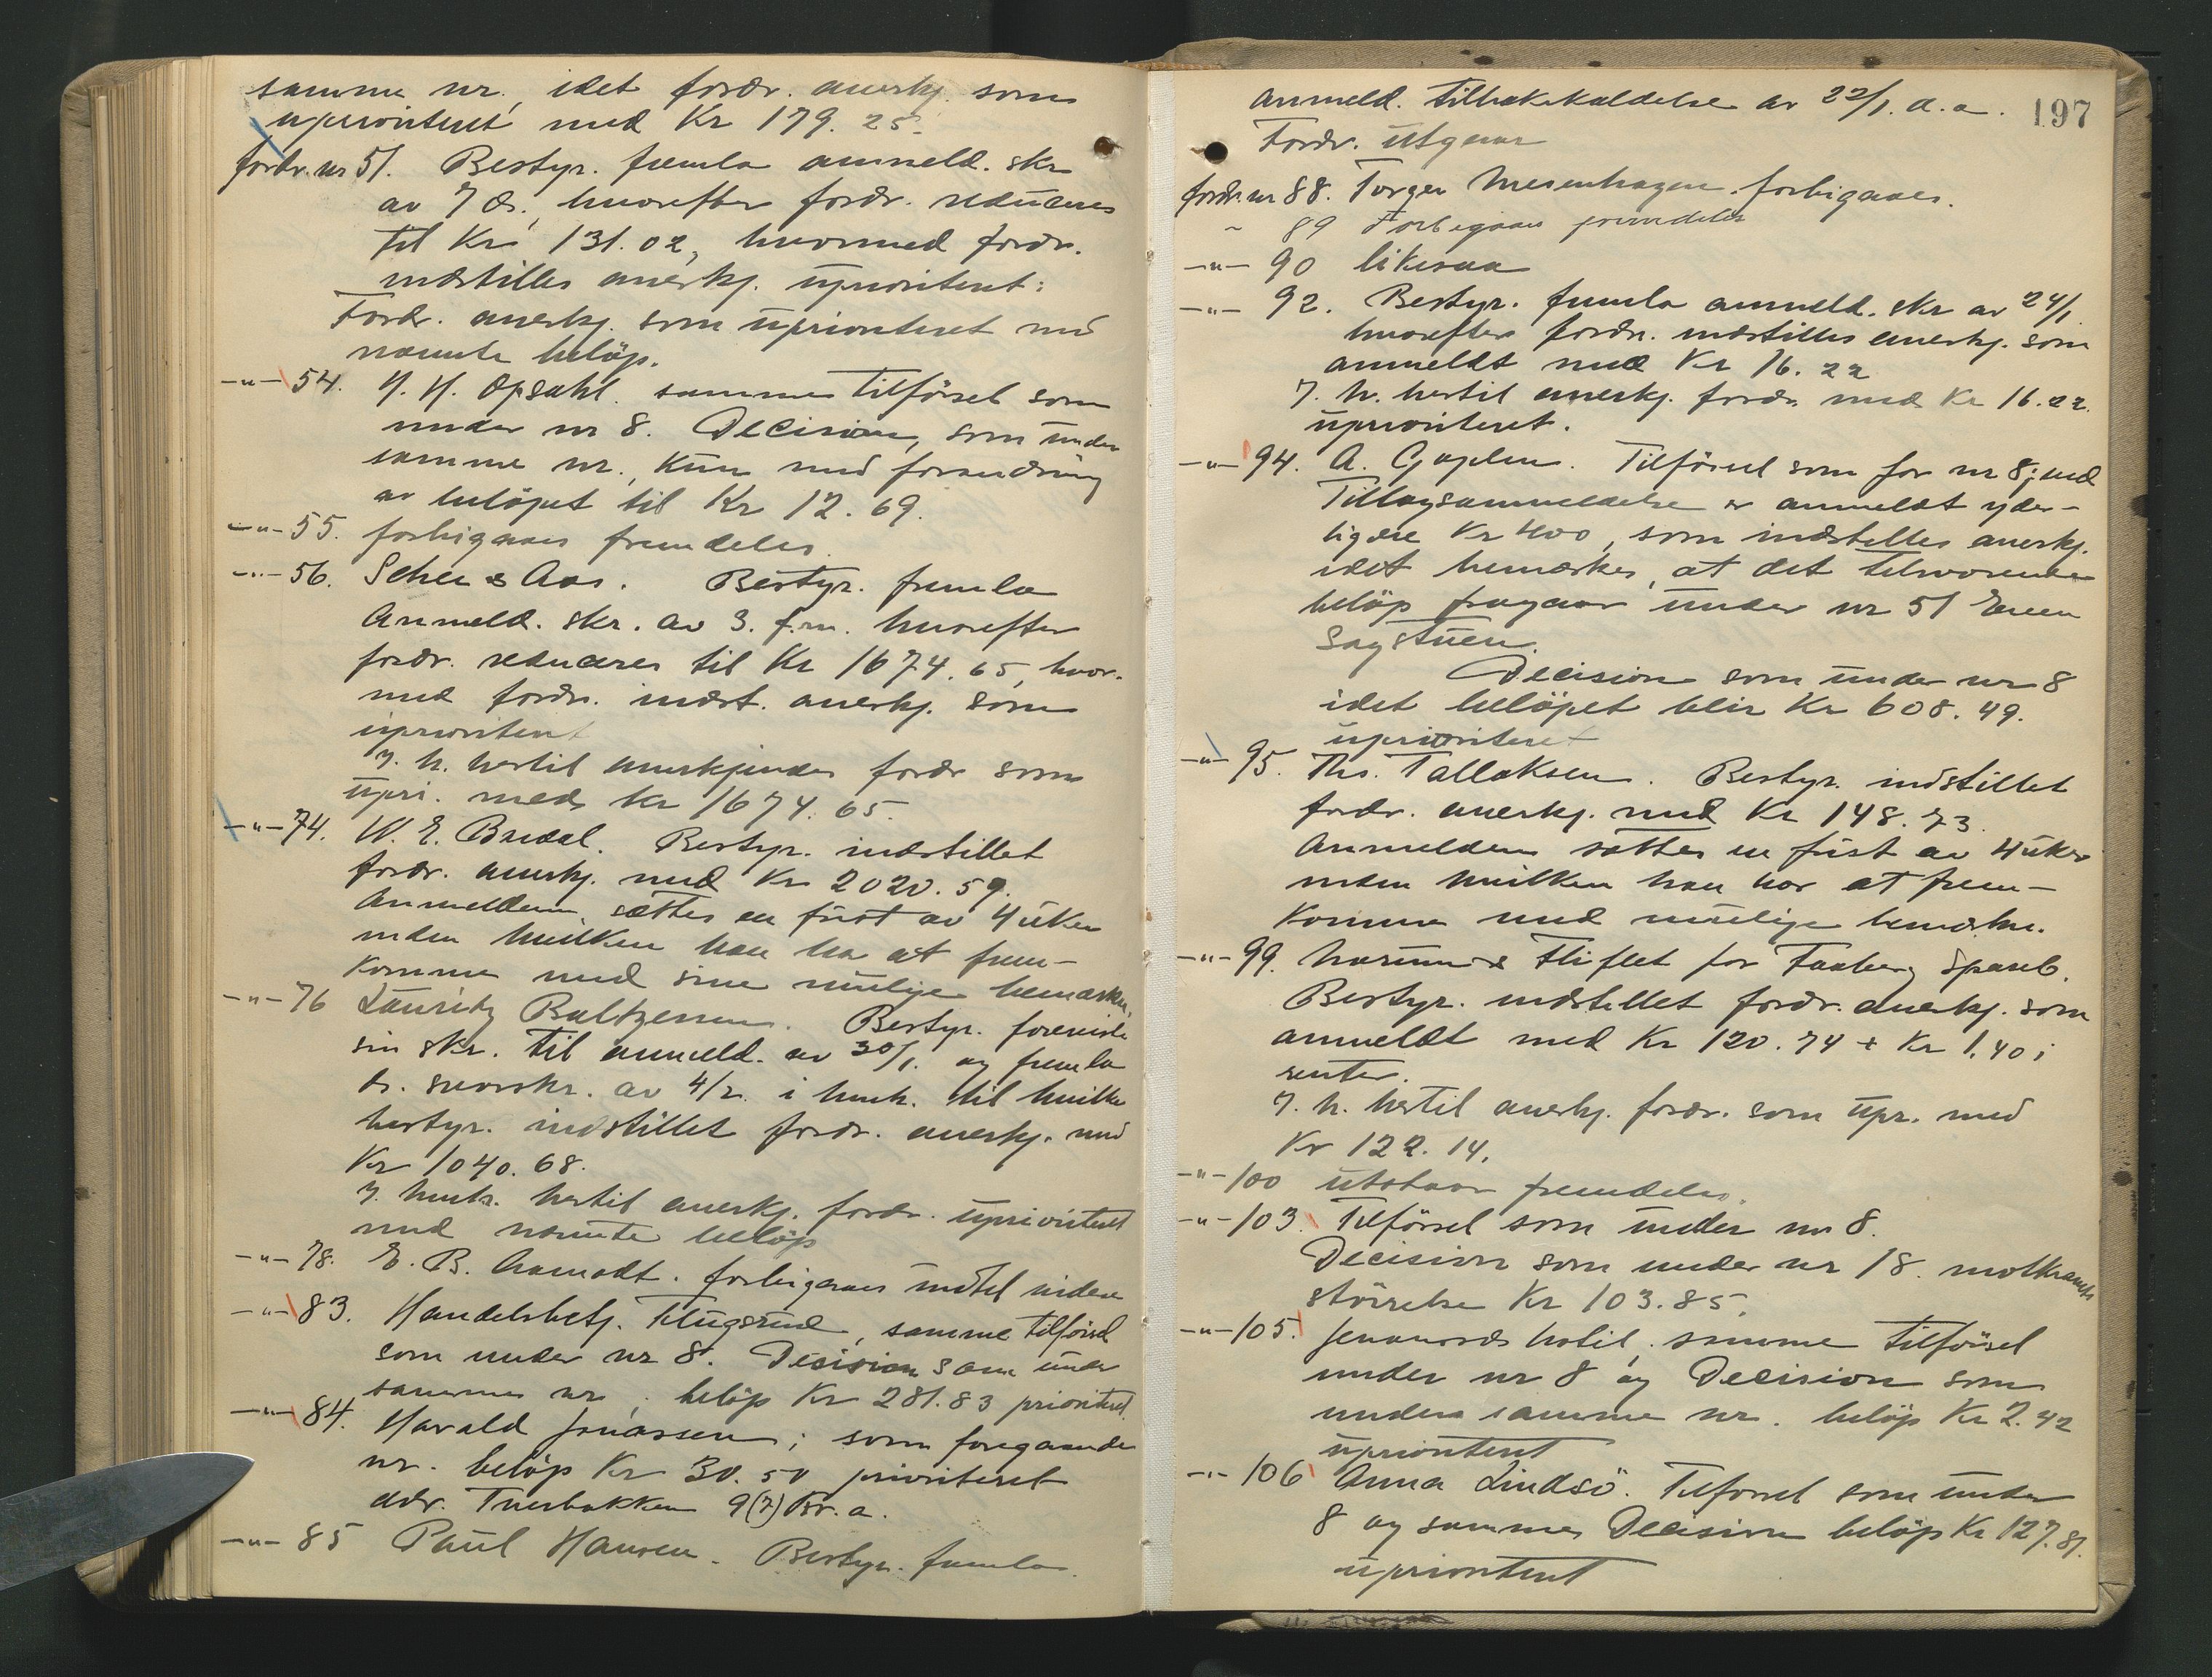 samme nr., idet fordr. anerkj. som
uprioritert med Kr 179.25.
fordr. nr 51. Bestyr. fremla anmeld. skr
av 7 ds., hvorefter fordr. reduceres
til Kr 131.02, hvormed fordr.
indstilles anerkj. uprioritert:
Fordr. anerkj. som uprioriteret med
nævnte beløp.
-"- 54. H. H. Opsahl. samme tilførsel som
under nr 8. Decision, som under
samme nr., kun med forandring
av beløpet til Kr 12.69.
-"- 55. forbigaaes fremdeles.
-"- 56. Schee & Aas. Bestyr. fremla
Anmeld. skr. av 3. f.m. hvorefter
fordr. reduceres til Kr 1674.65, hvor-
med fordr. indst. anerkj. som
uprioritert
I h. hertil anerkjendes fordr som
upri. med Kr 1674.65.
-"- 74. W. E. Bredal. Bestyr. indstillet
fordr. anerkj. med Kr 2020.59.
Anmelderen sættes en frist av 4 uker
inden hvilken han har at frem-
komme med sine mulige bemærkn.
-"- 76 Lauritz Baltzersen. Bestyr. foreviste
sin skr. til anmeld. av 30/1. og fremla
ds. svarskr. av 4/2. i henh. til hvilke
bestyr. indstillet fordr. anerkj. med
Kr 1040.68.
I henh. hertil anerkj. fordr. uprioritert
med nævnte beløp
-"- 78. E. B. Aamodt. forbigaaes indtil videre
-"- 83. Handelsbetj. Flugsrud, samme tilførsel
som under nr 8. Decision som under
samme nr., beløp Kr 281.83 prioritert.
-"- 84. Harald Jonassen; som foregaaende
nr. beløp Kr 30.50 prioriteret
adr. Tuerbakken 9(7) Kr.a.
-"- 85 Paul Hansen. Bestyr. fremla
197
anmeld. tilbakekaldelse av 22/1. d.a.
Fordr. utgaar
fordr. nr 88. Torger Mesenhagen forbigaaes.
" 89 Forbigaaes fremdeles
-"- 90 likesaa
-"- 92. Bestyr. fremla anmeld. skr av 24/1
hvorefter fordr. indstilles anerkj. som
anmeldt med Kr 16.22
I h. hertil anerkj. fordr. med Kr 16.22.
uprioriteret.
-"- 94. A. Gaplen. Tilførsel som for nr 8; ved
Tillægsanmeldelse er anmeldt yder-
ligere Kr 400, som indstilles anerkj.
idet bemerkes, at det tilsvarende
beløp fragaar under nr 51 Even
Sagstuen.
Decision som under nr 8
idet beløpet blir Kr 608.49.
uprioriteret
-"- 95. Ths. Tallaksen. Bestyr. indstillet
fordr. anerkj. med Kr 148.73.
Anmelderen sættes en frist av 4 uker
inden hvilken han har at frem-
komme med mulige bemærkn.
-"- 99. Narum & Fliflet for Faaberg Spareb.
Bestyr. indstillet fordr. anerkj. som
anmeldt med Kr 120.74 + Kr 1.40 i
renter.
I h. hertil anerkj. fordr. som upr. med
Kr 122.14.
-"- 100 utstaar fremdeles.
-"- 103. Tilførsel som under nr 8.
Decision som under nr 18. motkravets
størrelse Kr 103.85.
-"- 105. hotel, samme tilførsel
under nr 8 og Decision som
under samme nr. beløp Kr 2.42
uprioritert
-"- 106 Anna Lindsø. Tilførsel som under
8 og samme Decision beløp Kr 127.81.
uprioritert